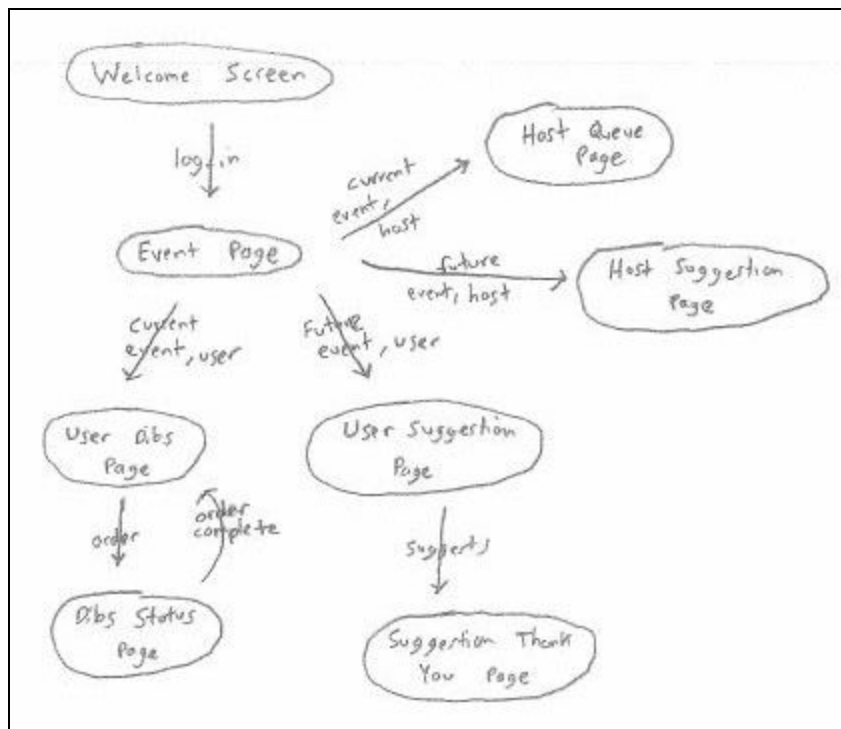 Welcome Screen
log in
Host Queue
Page
current
event,
host
Event Page
future
event, host
Host Suggestion
Page
current
event, user
Future
event, user
User Dibs
Page
User Suggestion
Page
order
order
complete
suggests
Dibs Status
Page
Suggestion Thank
You Page